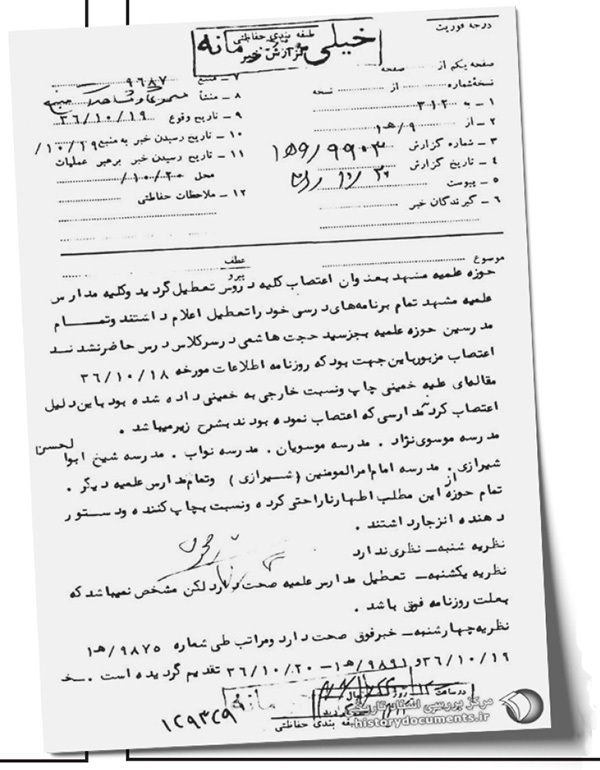 درجه فوریت
طبقه بندی حفاظتی
خیلی محرمانه
گزارش خبر
صفحه یکم از صفحه
نسخه‌شماره از نسخه
۱ - به ۳۱۲
۲ - از ۹/ه‍ ۱
۳ - شماره گزارش ۹۹۰۳/۹ه‍ ۱
۴ - تاریخ گزارش
۵ - پیوست
۶ - گیرندگان خبر
۷ - منبع ۹۶۸۷
۸ - منشأ
۹ - تاریخ وقوع ۳۶/۱۰/۱۹
۱۰ - تاریخ رسیدن خبر به منبع ۱۰/۱۹/
۱۱ - تاریخ رسیدن خبر برهبر عملیات
محل ۱۰/۲۰/
۱۲ - ملاحظات حفاظتی
موضوع
عطف
پیرو
حوزه علمیه مشهد بعنوان اعتصاب کلیه دروس تعطیل گردید وکلیه مدارس
علمیه مشهد تمام برنامه‌های درسی خود را تعطیل اعلام داشتند وتمام
مدرسین حوزه علمیه بجزسید حجت هاشمی درسرکلاس درس حاضرنشدند
اعتصاب مزبورباین جهت بود که روزنامه اطلاعات مورخه ۳۶/۱۰/۱۸
مقاله‌ای علیه خمینی چاپ ونسبت خارجی به خمینی داده شده بود باین دلیل
اعتصاب کردند مدارسی که اعتصاب نموده بودند بشرح زیرمیباشد .
مدرسه موسوی‌نژاد . مدرسه موسویان . مدرسه نواب . مدرسه شیخ ابوالحسن
شیرازی . مدرسه امام امرالمومنین (شیرازی) وتمام مدارس علمیه دیگر .
تمام حوزه از این مطلب اظهارناراحتی کرده ونسبت بچاپ کننده ودستور
دهنده انزجارد اشتند .
نظریه شنبه - نظری ندارد
نظریه یکشنبه - تعطیل مدارس علمیه صحت دارد لکن مشخص نمیباشد که
بعلت روزنامه فوق باشد .
نظریه چهارشنبه - خبرفوق صحت دارد ومراتب طی شماره ۹۸۷۵/۹ه‍ ۱
۳۶/۱۰/۱۹ و ۹۸۹۱/۹ه‍ ۱ - ۳۶/۱۰/۲۰ تقدیم گردیده است . خ
در ساعت روز
طبقه بندی حفاظتی
۱۲۹۳۲۹
مرکز بررسی اسناد تاریخی
historydocuments.ir